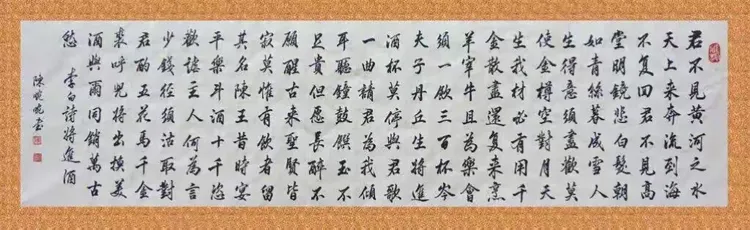 君不見黃河之水
天上來奔流到海
不復回君不見高
堂明鏡悲白髮朝
如青絲暮成雪人
生得意須盡歡莫
使金樽空對月天
生我材必有用千
金散盡還复來烹
羊宰牛且為樂會
須一飲三百杯岑
夫子丹丘生將進
酒杯莫停與君歌
一曲請君為我傾
耳聽鐘鼓饌玉不
足貴但愿長醉不
願醒古來聖賢皆
寂莫惟有飲者留
其名陳王昔時宴
平樂斗酒十千恣
歡謔主人何為言
少錢徑須沽取對
君酌五花馬千金
裘呼兒將出換美
酒與爾同銷萬古
愁 李白詩將進酒